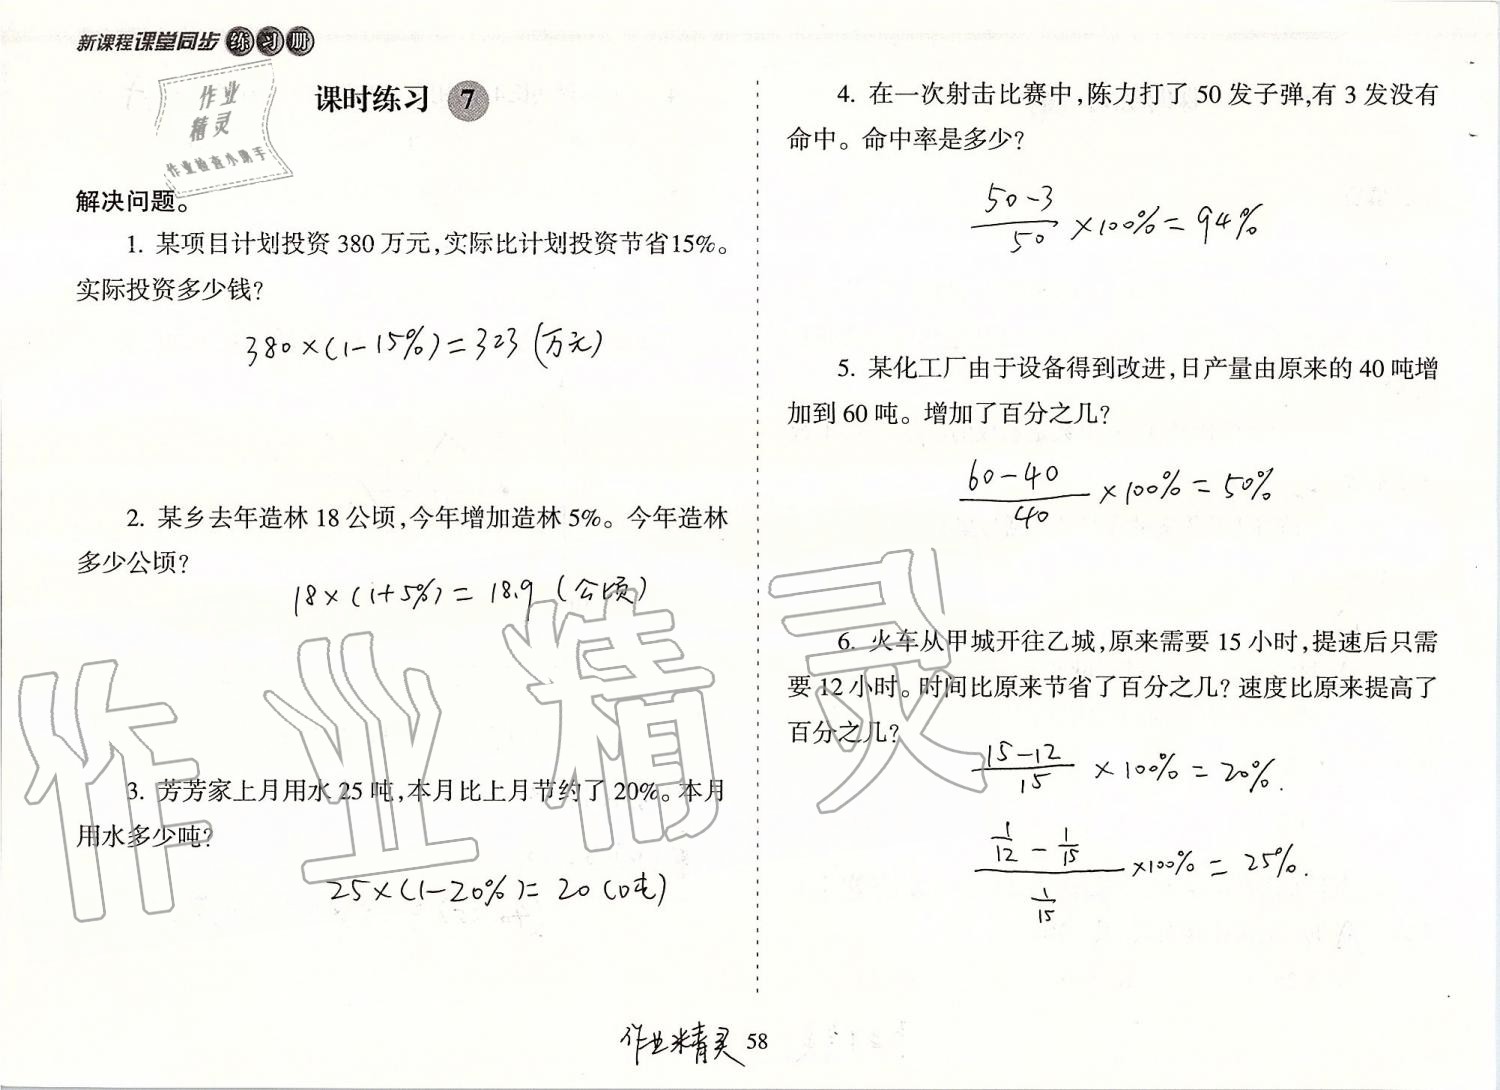 新课程课堂同步练习册
作业
精灵
作业检查小助手
课时练习 7
解决问题。
1. 某项目计划投资 380 万元,实际比计划投资节省15%。
实际投资多少钱?
380×(1-15%)=323 (万元)
2. 某乡去年造林 18 公顷,今年增加造林 5%。今年造林
多少公顷?
18×(1+5%)= 18.9 (公顷)
3. 芳芳家上月用水 25 吨,本月比上月节约了 20%。本月
用水多少吨?
25×(1-20%)= 20 (吨)
4. 在一次射击比赛中,陈力打了 50 发子弹,有 3 发没有
命中。命中率是多少?
50-3
50
×100%=94%
5. 某化工厂由于设备得到改进,日产量由原来的 40 吨增
加到 60 吨。增加了百分之几?
60-40
40
×100%=50%
6. 火车从甲城开往乙城,原来需要 15 小时,提速后只需
要 12 小时。时间比原来节省了百分之几? 速度比原来提高了
百分之几?
15-12
15
×100%=20%.
1/12 - 1/15
1/15
×100%=25%.
作业精灵
作业精灵 58